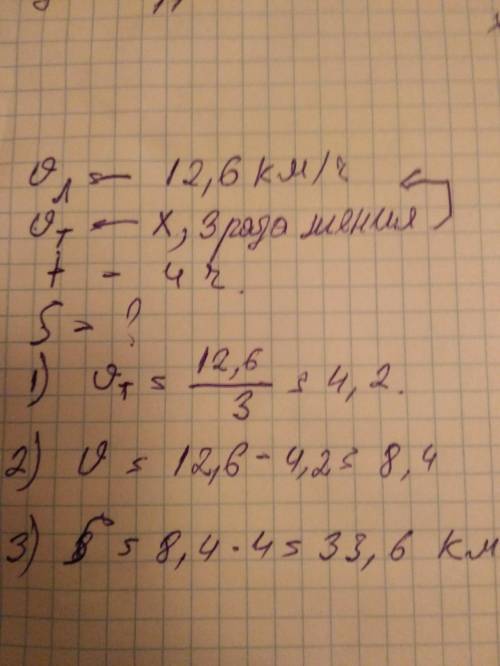 υл = 12,6 км/ч
υт — х, 3 раза меньше
t - 4 ч.
S = ?
1) υт = 12,6/3 = 4,2.
2) υ = 12,6 - 4,2 = 8,4
3) S = 8,4 · 4 = 33,6 км